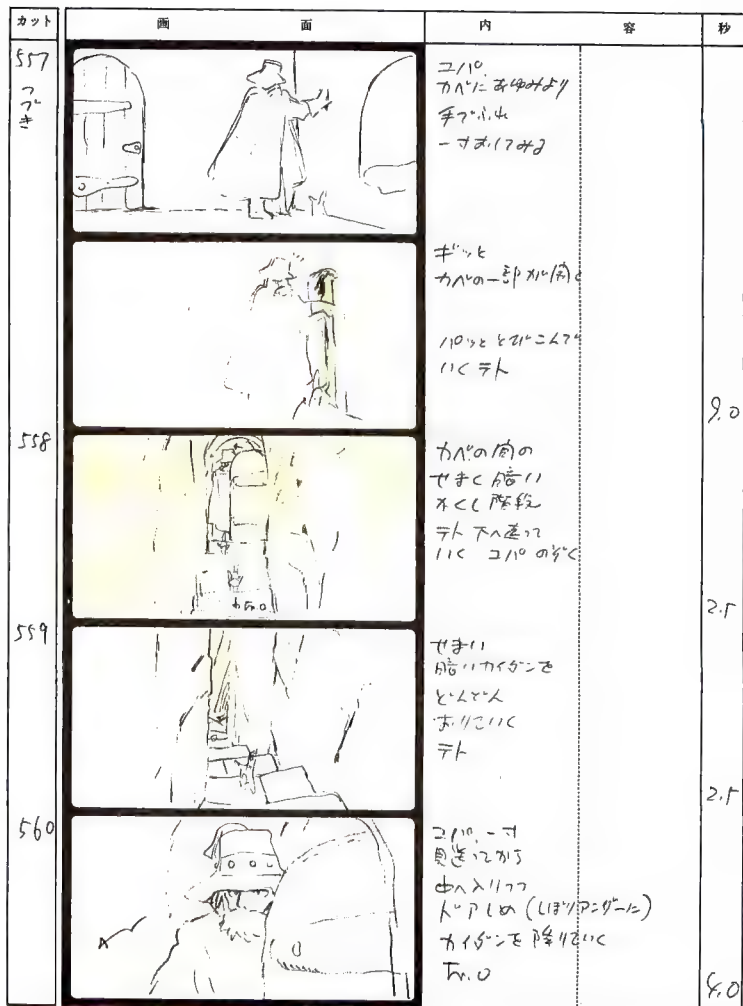 カット 画 面 内 容 秒
557
つづき
ユパ
カベにあゆみより
手でふれ
一寸おしてみる
ギッと
カベの一部が開く
パッととびこんで
いくテト
9.0
558
カベの間の
せまく暗い
かくし階段
テト 下へ走って
いく ユパのぞく
2.5
559
せまい
暗いカイダンを
どんどん
おりていく
テト
2.5
560
ユパ、一寸
見送ってから
中へ入りつつ
ドアしめ(しぼりアンダーに)
カイダンを降りていく